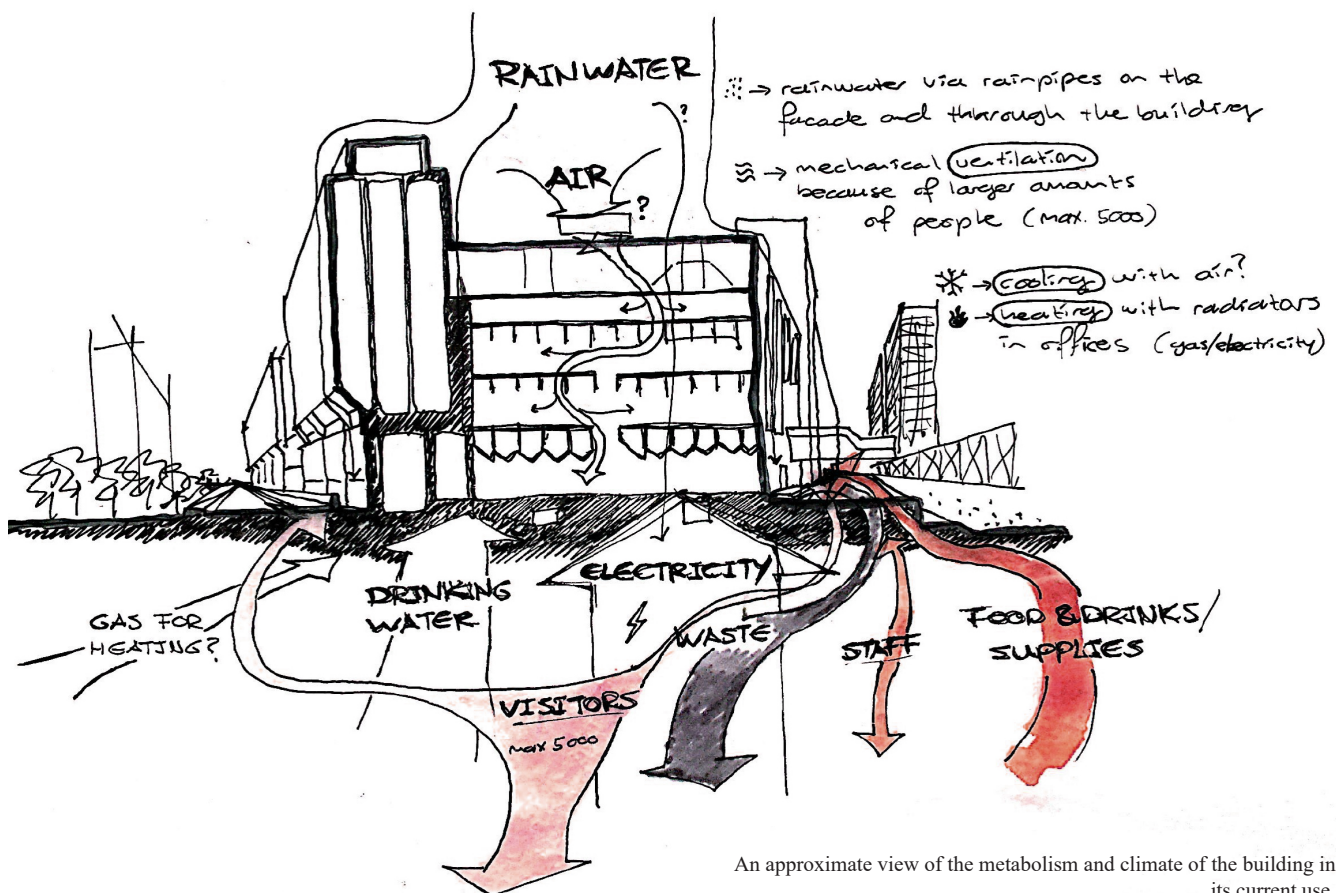 RAINWATER
?
AIR
?
→ rainwater via rainpipes on the
facade and thorough the building
→ mechanical ventilation
because of larger amounts
of people (max. 5000)
→ cooling with air?
→ heating with radiators
in offices (gas/electricity)
GAS FOR
HEATING?
DRINKING
WATER
ELECTRICITY
WASTE
STAFF
FOOD & DRINKS/
SUPPLIES
VISITORS
max 5000
An approximate view of the metabolism and climate of the building in
its current use.